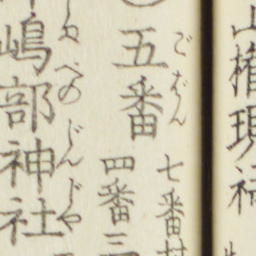 山権現社
ごばん
五番
七番村
四番三
しまべのじんじや
嶋部神社